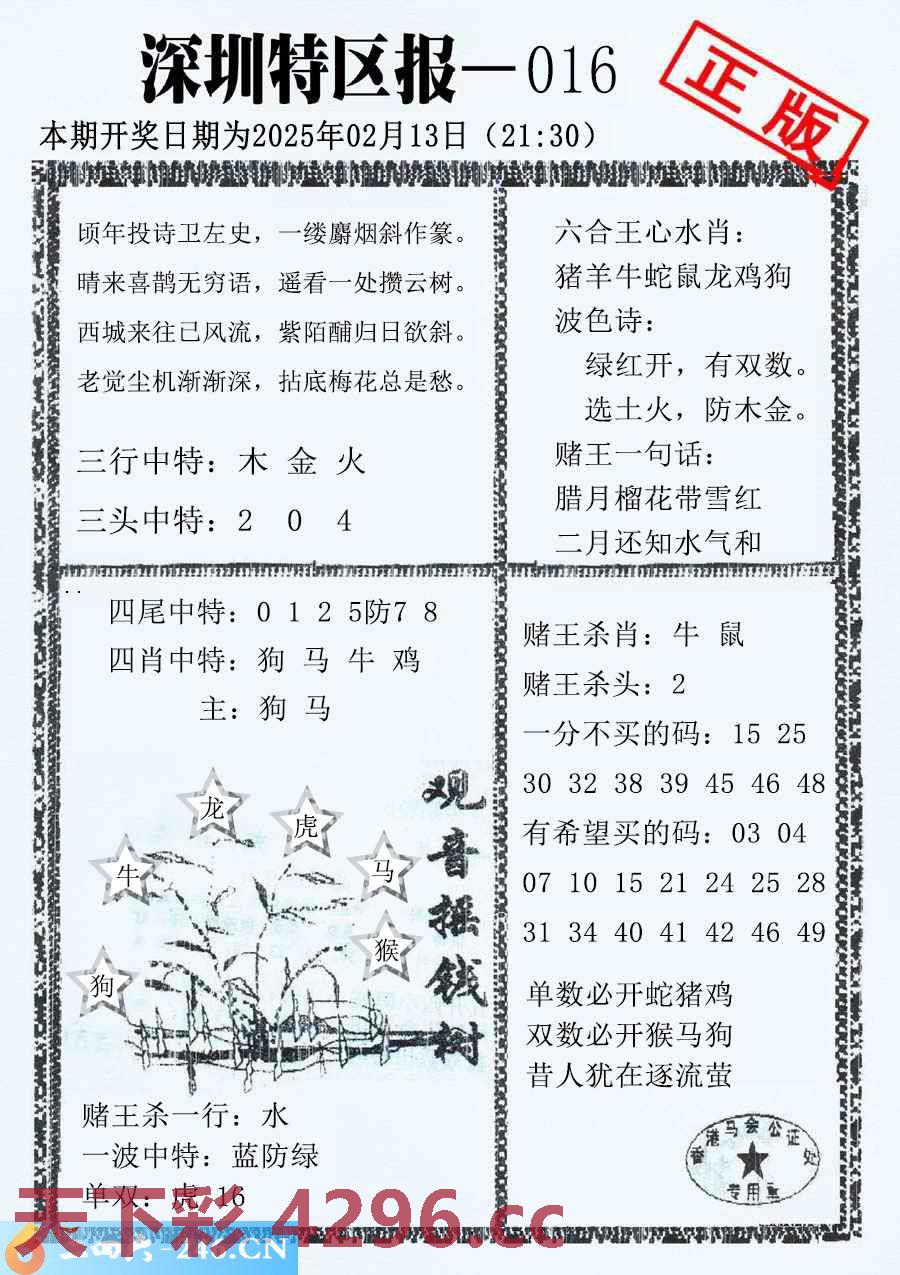 深圳特区报—016
正版
本期开奖日期为2025年02月13日（21:30）
顷年投诗卫左史，一缕麝烟斜作篆。
晴来喜鹊无穷语，遥看一处攒云树。
西城来往已风流，紫陌酺归日欲斜。
老觉尘机渐渐深，拈底梅花总是愁。
三行中特：木 金 火
三头中特：2 0 4
六合王心水肖：
猪羊牛蛇鼠龙鸡狗
波色诗：
绿红开，有双数。
选土火，防木金。
赌王一句话：
腊月榴花带雪红
二月还知水气和
四尾中特：0 1 2 5防7 8
四肖中特：狗 马 牛 鸡
主：狗 马
龙
虎
牛
马
猴
狗
观音摇钱树
赌王杀一行：水
一波中特：蓝防绿
单双：虎 16
赌王杀肖：牛 鼠
赌王杀头：2
一分不买的码：15 25
30 32 38 39 45 46 48
有希望买的码：03 04
07 10 15 21 24 25 28
31 34 40 41 42 46 49
单数必开蛇猪鸡
双数必开猴马狗
昔人犹在逐流萤
香港马会公证处
专用章
天下彩4296.cc